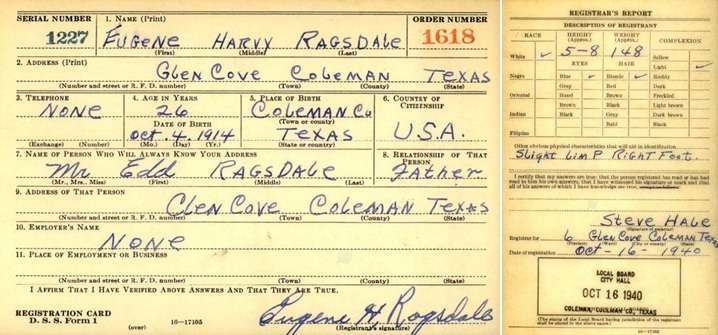 SERIAL NUMBER
1227
1. NAME (Print)
EUGENE HARVY RAGSDALE
(First) (Middle) (Last)
ORDER NUMBER
1618
2. ADDRESS (Print)
GLEN COVE COLEMAN TEXAS
(Number and street or R. F. D. number) (Town) (County) (State)
3. TELEPHONE
NONE
(Exchange) (Number)
4. AGE IN YEARS
26
DATE OF BIRTH
Oct. 4. 1914
(Mo.) (Day) (Yr.)
5. PLACE OF BIRTH
COLEMAN Co
(Town or county)
TEXAS
(State or country)
6. COUNTRY OF
CITIZENSHIP
U.S.A.
7. NAME OF PERSON WHO WILL ALWAYS KNOW YOUR ADDRESS
Mr Edd RAGSDALE
(Mr., Mrs., Miss) (First) (Middle) (Last)
8. RELATIONSHIP OF THAT
PERSON
Father
9. ADDRESS OF THAT PERSON
Glen Cove Coleman Texas
(Number and street or R. F. D. number) (Town) (County) (State)
10. EMPLOYER'S NAME
NONE
11. PLACE OF EMPLOYMENT OR BUSINESS
(Number and street or R. F. D. number) (Town) (County) (State)
I AFFIRM THAT I HAVE VERIFIED ABOVE ANSWERS AND THAT THEY ARE TRUE.
REGISTRATION CARD
D. S. S. Form 1
(over)
16—17105
Eugene H Ragsdale
(Registrant's signature)
REGISTRAR'S REPORT
DESCRIPTION OF REGISTRANT
RACE
HEIGHT
(Approx.)
WEIGHT
(Approx.)
COMPLEXION
White ✓
5-8
148
Sallow
EYES
HAIR
Light ✓
Negro
Blue ✓
Blonde ✓
Ruddy
Gray
Red
Dark
Oriental
Hazel
Brown
Freckled
Brown
Black
Light brown
Indian
Black
Gray
Dark brown
Bald
Black
Filipino
Other obvious physical characteristics that will aid in identification
Slight Limp Right Foot.
I certify that my answers are true; that the person registered has read or has had
read to him his own answers; that I have witnessed his signature or mark and that
all of his answers of which I have knowledge are true
Steve Hale
(Signature of registrar)
Registrar for 6 Glen Cove Coleman Texas
(Precinct) (Ward) (City or county) (State)
Date of registration Oct-16-1940
LOCAL BOARD
CITY HALL
OCT 16 1940
COLEMAN, COLEMAN CO., TEXAS
(The stamp of the Local Board having jurisdiction of the registrant
shall be placed in the above space.)
16—17105